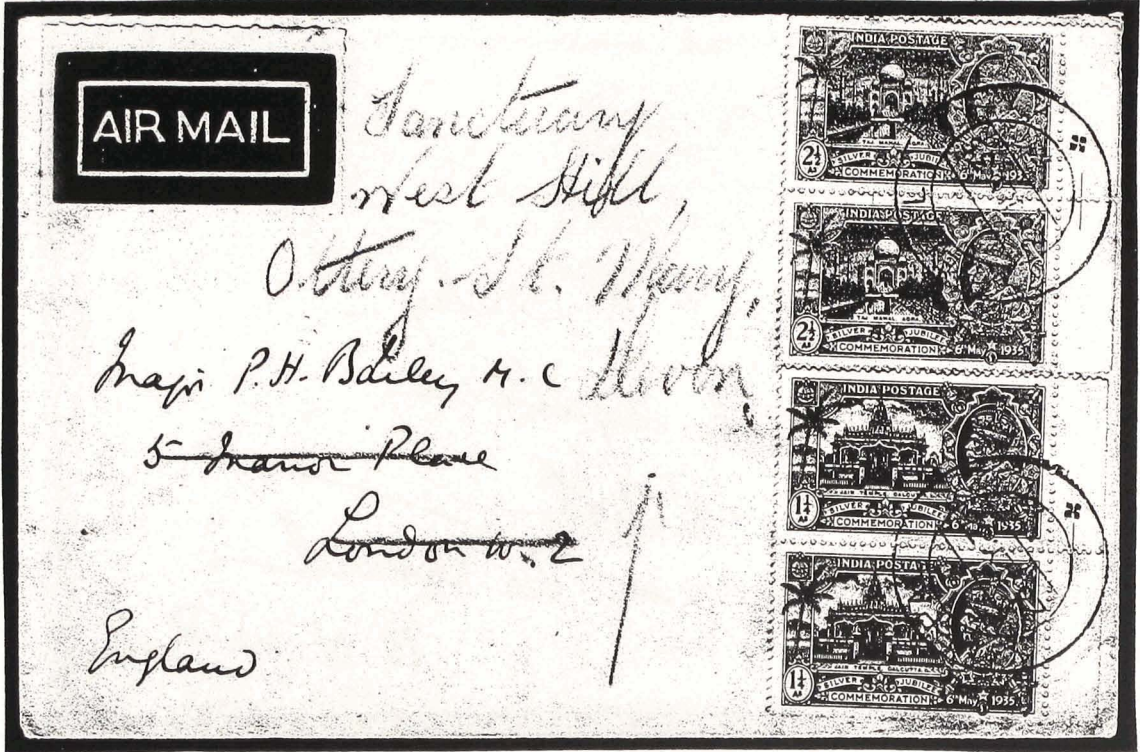 AIR MAIL
Sanctuary
West Hill,
Ottery. St. Mary,
Devon
Major P.H. Bailey M.C
5 Manor Place
London W. 2
England
1
INDIA POSTAGE
TAJ MAHAL AGRA
2½ AS
SILVER JUBILEE
COMMEMORATION 6th May 1935
INDIA POSTAGE
TAJ MAHAL AGRA
2½ AS
SILVER JUBILEE
COMMEMORATION 6th May 1935
INDIA POSTAGE
JAIN TEMPLE CALCUTTA
1¼ AS
SILVER JUBILEE
COMMEMORATION 6th May 1935
INDIA POSTAGE
JAIN TEMPLE CALCUTTA
1¼ AS
SILVER JUBILEE
COMMEMORATION 6th May 1935